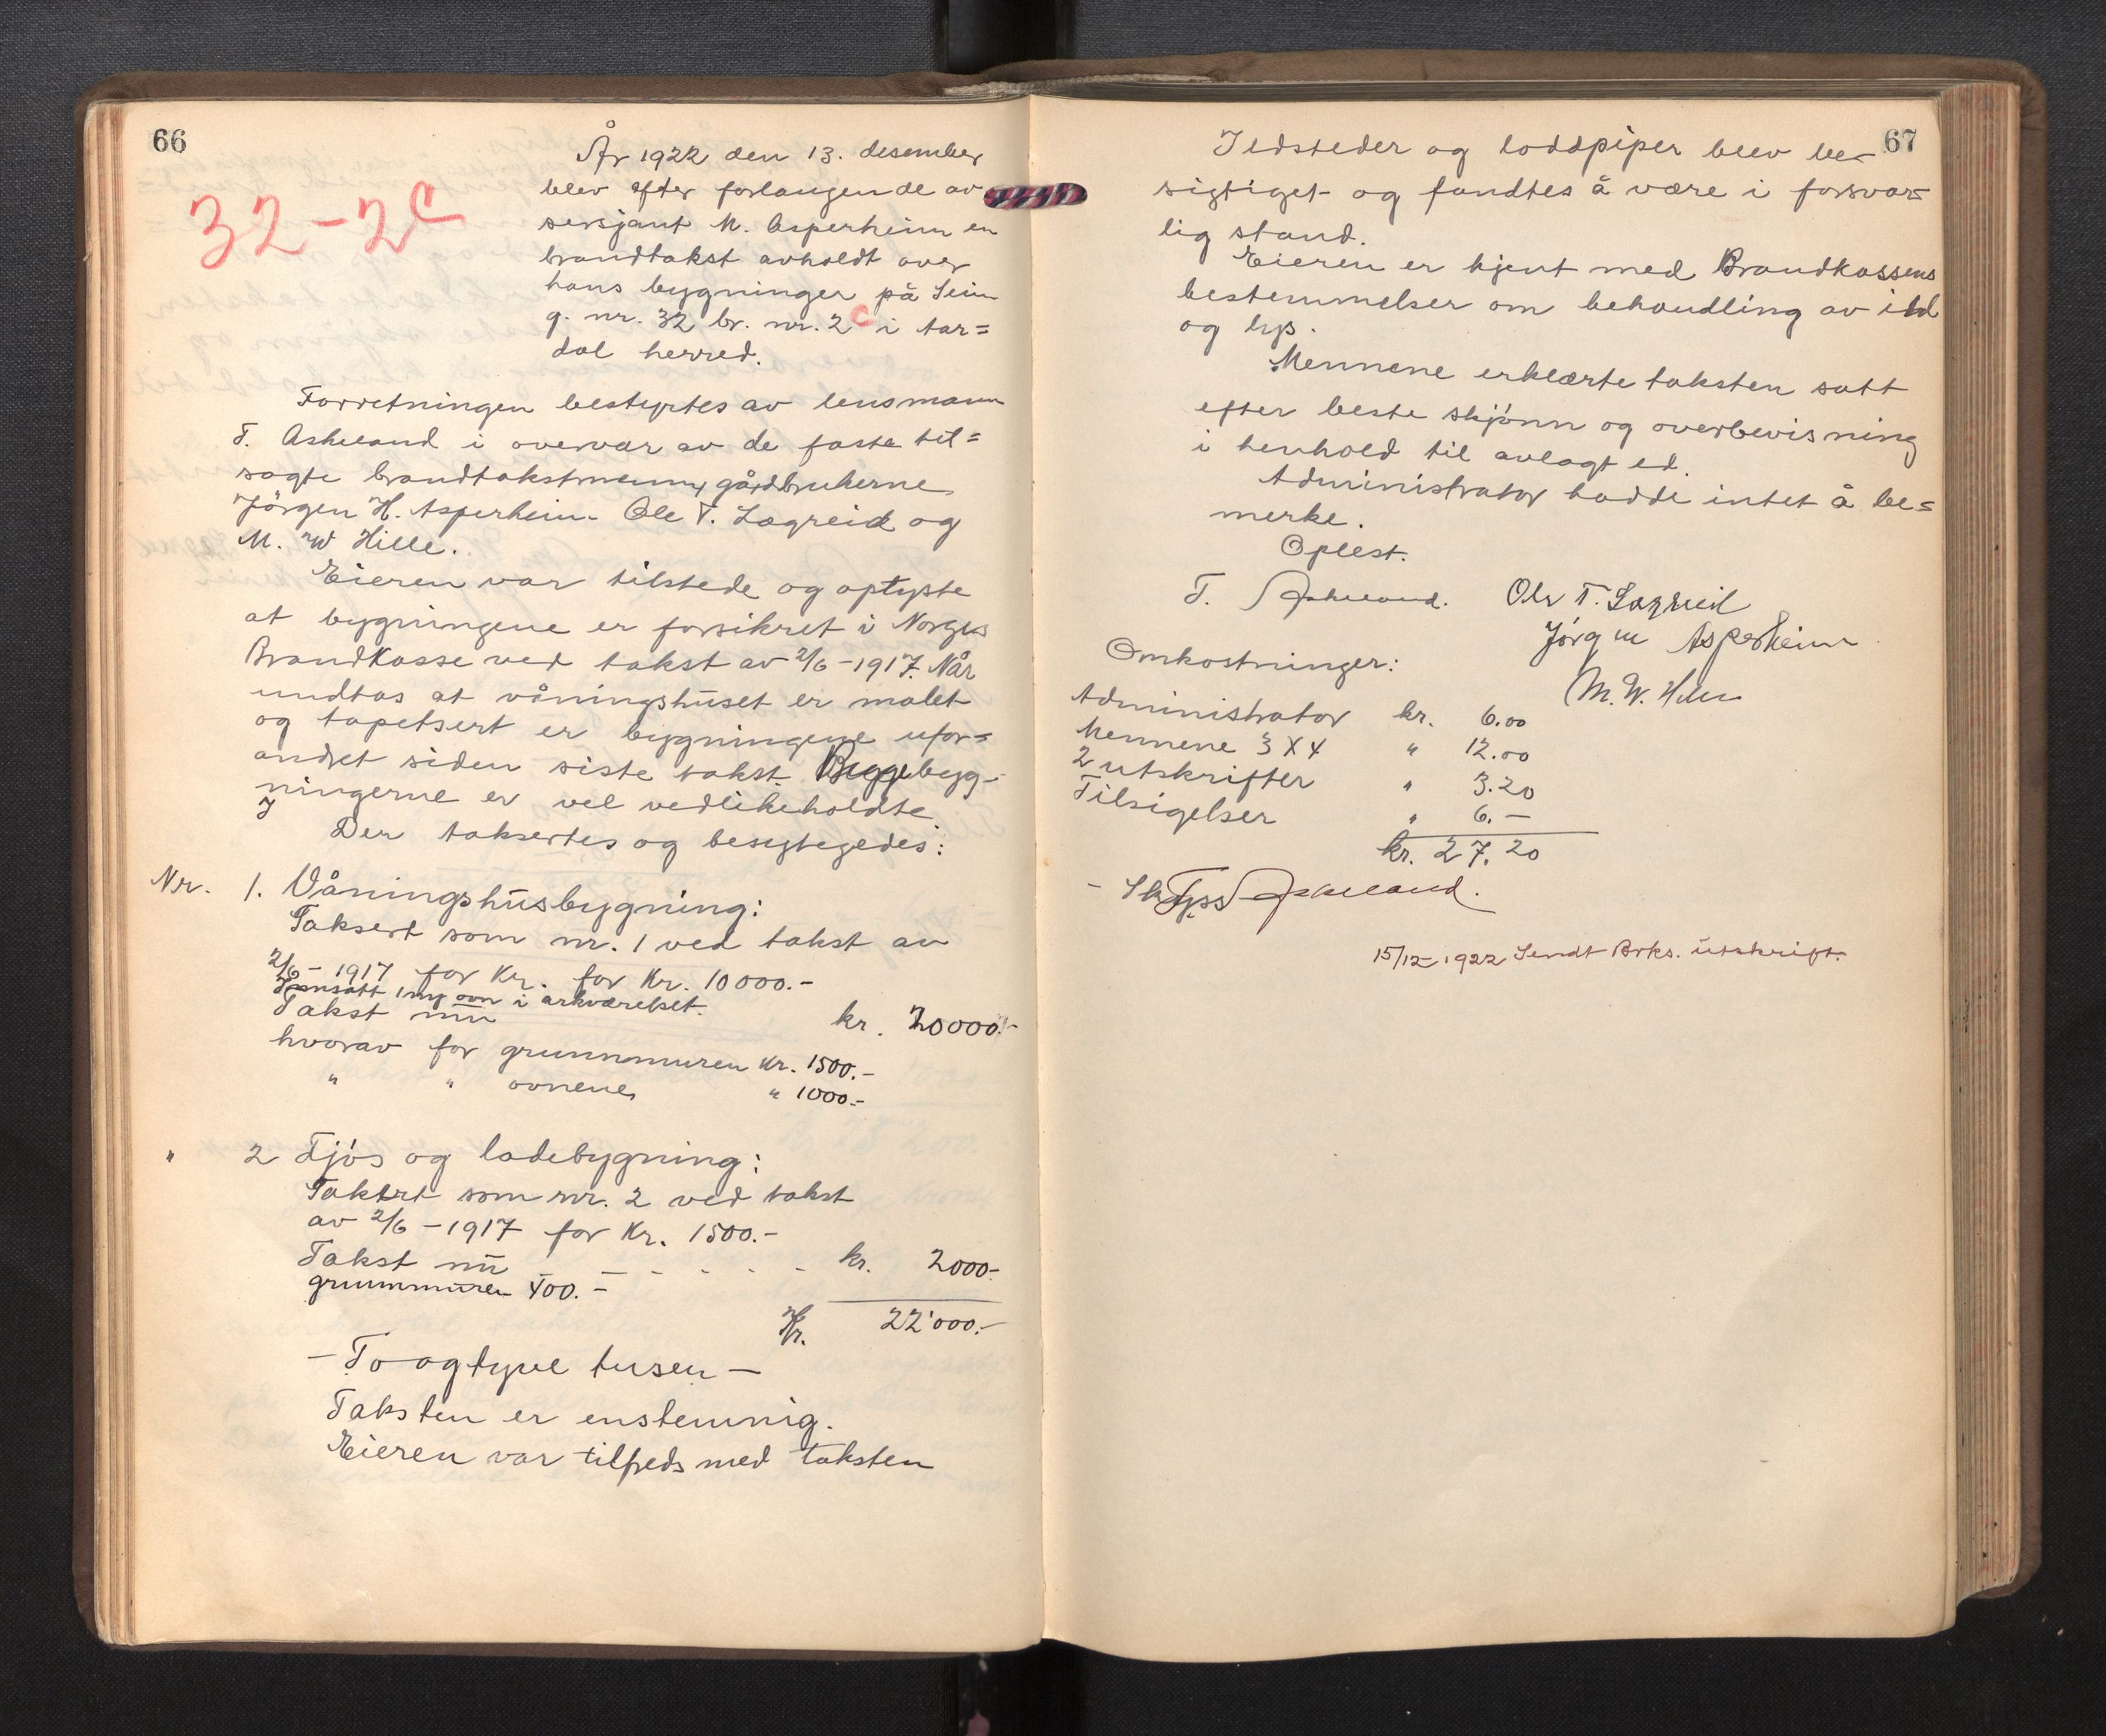 66
32-2c
År 1922 den 13. desember
blev efter forlangende av
sersjant M. Asperheim en
brandtakst avholdt over
hans bygninger på Seim
g. nr. 32 br. nr. 2c i Aar=
dal herred.
Forretningen bestyrtes av lensmann
T. Askeland i overvær av de faste til=
sagte brandtakstmenn, gårdbrukerne
Jörgen H. Asperheim. Ole T. Lægreid og
M. W Hille.
Eieren var tilstede og oplyste
at bygningene er forsikret i Norges
Brandkasse ved takst av 2/6-1917. Når
undtas at våningshuset er malet
og tapetsert er bygningene ufor=
andret siden siste takst. Begge byg-
ningerne er vel vedlikeholdte
Der taksertes og besigtigedes:
Nr. 1. Våningshusbygning:
Taksert som nr. 1 ved takst av
2/6-1917 for Kr. for Kr. 10000.-
Innsatt 1 ny ovn i arkværelset.
Takst nu kr. 20000.-
hvorav for grunnmuren Kr. 1500.-
" " ovnene " 1000.-
" 2 Fjös og ladebygning:
Taksert som nr. 2 ved takst
av 2/6-1917 for Kr. 1500.-
Takst nu - - - - - kr. 2000.-
grunnmuren 400.-
Kr. 22'000.-
- To og tyve tusen -
Taksten er enstemmig.
Eieren var tilfreds med taksten
67
Ildsteder og loddpiper blev be-
sigtiget og fandtes å være i forsvar-
lig stand.
Eieren er kjent med Brandkassens
bestemmelser om behandling av ild
og lys.
Mennene erklærte taksten satt
efter beste skjönn og overbevisning
i henhold til avlagt ed.
Administrator hadde intet å be=
merke.
Oplest.
T. Askeland. Ole T. Lægreid
Jörgen Asperheim
M. W. Hille
Omkostninger:
Administrator kr. 6.00
Mennene 3 X 4 " 12.00
2 utskrifter " 3.20
Tilsigelser " 6.-
kr. 27.20
Askeland.
15/12-1922 Sendt Brks. utskrift.